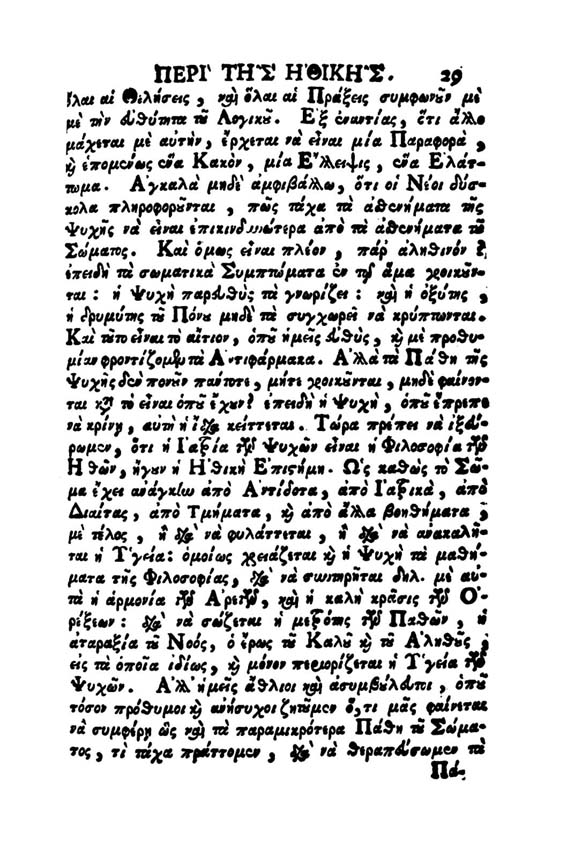 ΠΕΡΙ' ΤΗ͂Σ Η'ΘΙΚΗ͂Σ. 29
ὅλαι αἱ Θελήσεις, καὶ ὅλαι αἱ Πράξεις συμφωνοῦν μὲ
μὲ τὴν εὐθύτητα τοῦ Λογικοῦ. Ἐξ ἐναντίας, ὅ,τι ἄλλο
μάχεται μὲ αὐτὴν, ἔρχεται νὰ εἶναι μία Παραφορὰ,
καὶ ἑπομένως ἕνα Κακὸν, μία Ἔλλειψις, ἕνα Ἐλάτ-
τωμα. Ἀγκαλὰ μηδὲ ἀμφιβάλλω, ὅτι οἱ Νέοι δύσ-
κολα πληροφοροῦνται, πῶς τάχα τὰ ἀσθενήματα τῆς
Ψυχῆς νὰ εἶναι ἐπικινδυνώτερα ἀπὸ τὰ ἀσθενήματα τοῦ
Σώματος. Καὶ ὅμως εἶναι πλέον, πάρ' ἀληθινόν;
ἐπειδὴ τὰ σωματικὰ Συμπτώματα ἐν τῷ ἅμα γροικοῦν-
ται: ἡ Ψυχὴ παρευθὺς τὰ γνωρίζει: καὶ ἡ ὀξύτης,
ἡ δριμύτης τοῦ Πόνου μηδὲ τὰ συγχωρεῖ νὰ κρύπτωνται.
Καὶ τοῦτο εἶναι τὸ αἴτιον, ὁποῦ ἡμεῖς εὐθὺς, καὶ μὲ προθυ-
μίαν φροντίζομεν τὰ Ἀντιφάρμακα. Ἀλλὰ τὰ Πάθη τῆς
Ψυχῆς δὲν πονοῦν πάντοτε, μήτε γροικοῦνται, μηδὲ φαίνον-
ται κατὰ τὸ εἶναι ὁποῦ ἔχουν; ἐπειδὴ ἡ Ψυχὴ, ὁποῦ ἔπρεπε
νὰ κρίνῃ, αὐτὴ ἡ ἴδια κείττεται. Τώρα πρέπει νὰ ἰξεύ-
ρωμεν, ὅτι ἡ Ἰατρία τῶν Ψυχῶν εἶναι ἡ Φιλοσοφία τῶν
Ἠθῶν, ἤγουν ἡ Ἠθικὴ Ἐπιστήμη. Ὡς καθὼς τὸ Σῶ-
μα ἔχει ἀνάγκην ἀπὸ Ἀντίδοτα, ἀπὸ Ἰατρικὰ, ἀπὸ
Διαίτας, ἀπὸ Τμήματα, καὶ ἀπὸ ἄλλα βοηθήματα;
μὲ τέλος, ἢ διὰ νὰ φυλάττεται, ἢ διὰ νὰ ἀνακαλῆ-
ται ἡ Ὑγεία: ὁμοίως χρειάζεται καὶ ἡ Ψυχὴ τὰ μαθή-
ματα τῆς Φιλοσοφίας, διὰ νὰ συντηρῆται δηλ. μὲ αὐ-
τὰ ἡ ἁρμονία τῶν Ἀρετῶν, καὶ ἡ καλὴ κρᾶσις τῶν Ὀ-
ρέξεων: διὰ νὰ σώζεται ἡ μετρότης τῶν Παθῶν, ἡ
ἀταραξία τοῦ Νοός, ὁ ἔρως τοῦ Καλοῦ καὶ τοῦ Ἀληθοῦς;
εἰς τὰ ὁποῖα ἰδίως, καὶ μόνον περιορίζεται ἡ Ὑγεία τῶν
Ψυχῶν. Ἀλλ' ἡμεῖς ἄθλιοι καὶ ἀσυμβούλευτοι, ὁποῦ
τόσον πρόθυμοι καὶ ἀνήσυχοι ζητοῦμεν ὅ,τι μᾶς φαίνεται
νὰ συμφέρῃ ὡς καὶ τὰ παραμικρότερα Πάθη τοῦ Σώμα-
τος, τί τάχα πράττομεν, διὰ νὰ θεραπεύσωμεν τὰ
Πά-